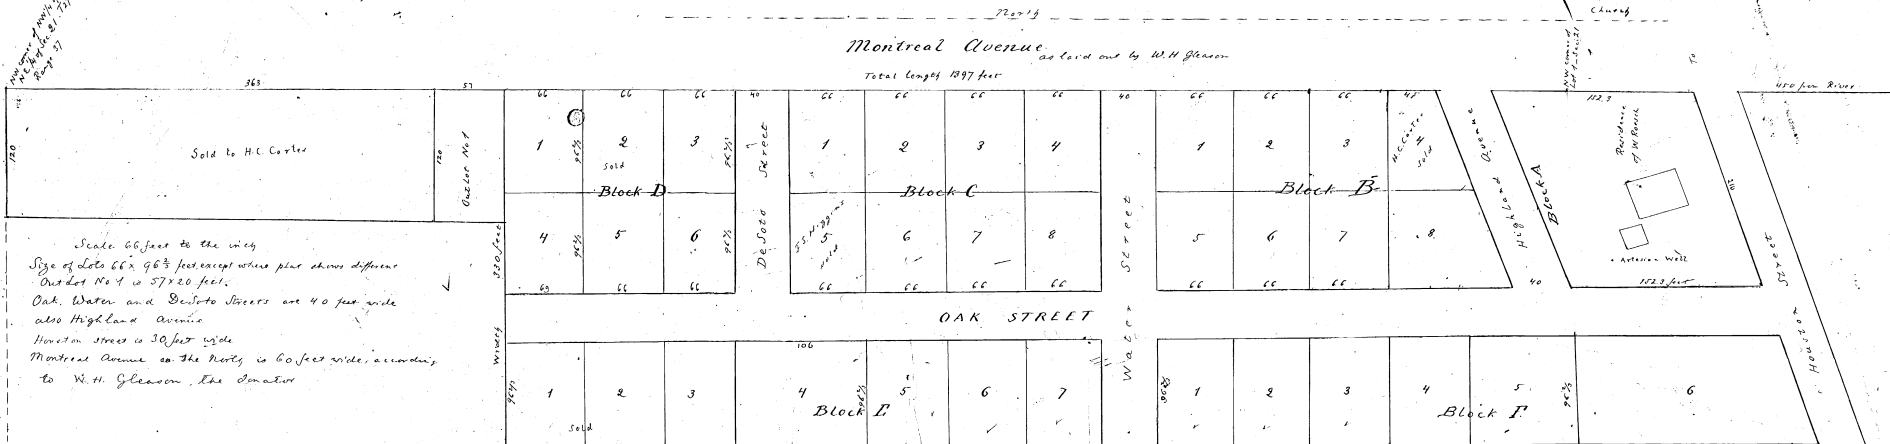 North
Church
NW corner of NW/4 of
NE/4 of Sec. 21. T27
Range 37
Montreal Avenue
as laid out by W. H Gleason
Total length 1397 feet
NW corner of
Lot 1 - Sec 21
To
450 from River
363
57
66
66
66
40
66
66
66
66
40
66
66
66
45
152.3
120
Sold to H. C. Carter
120
Outlot No 1
1
96 2/3
2
Sold
3
96 2/3
Block D
4
96 2/3
5
6
96 2/3
69
66
66
DeSoto Street
1
2
3
4
Block C
S.S. Higgins
5
sold
6
7
8
66
66
66
66
Water Street
1
2
3
H.C. Carter
4
Sold
Block B
5
6
7
8
66
66
66
Highland Avenue
40
Block A
Residence
of W Roesch
Artesian Well
152.3 feet
Houston Street
Scale 66 feet to the inch
Size of Lots 66 x 96 2/3 feet, except where plat shows different
Outlot No 1 is 57 x 20 feet.
Oak, Water and DeSoto Streets are 40 feet wide
also Highland Avenue
Houston street is 30 feet wide
Montreal Avenue on the North is 60 feet wide, according
to W. H. Gleason, the donator
330 feet
OAK STREET
106
96 2/3
1
Sold
2
3
4
96 2/3
5
6
7
Block E
96 2/3
1
2
3
4
5
96 2/3
6
Block F